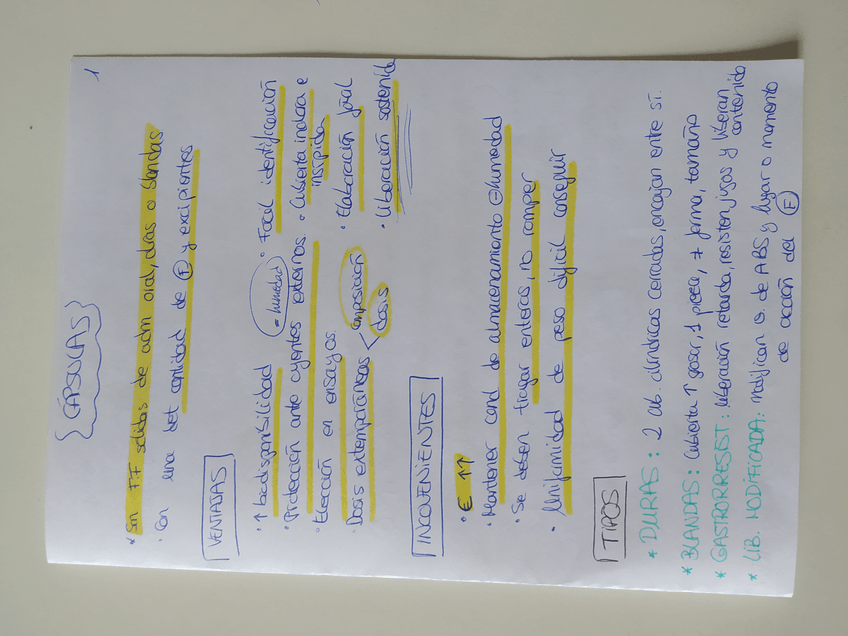 1
CÁPSULAS
* Son F.F sólidas de adm oral, duras o blandas
· Con una det cantidad de Ⓕ y excipientes
VENTAJAS
· ↑ biodisponibilidad
· Protección ante agentes externos.
= humedad
· Elección en ensayos
· Dosis extemporáneas < composición
dosis
· Fácil identificación
· Cubierta inodora e
insípida
· Elaboración fácil
· Liberación sostenida
INCOVENIENTES
· € ↑↑
· Mantener cond de almacenamiento ⊖humedad
· Se deben tragar enteras, no romper
· Uniformidad de peso difícil conseguir
TIPOS
* DURAS: 2 cub. cilíndricas cerradas, encajan entre sí.
* BLANDAS: Cubierta ↑ grosor, 1 pieza, ≠ forma, tamaño
* GASTRORRESIST: liberación retarda, resisten jugos y liberan
contenido
* LIB. MODIFICADA: modifican v. de ABS y lugar o momento
de acción del Ⓕ